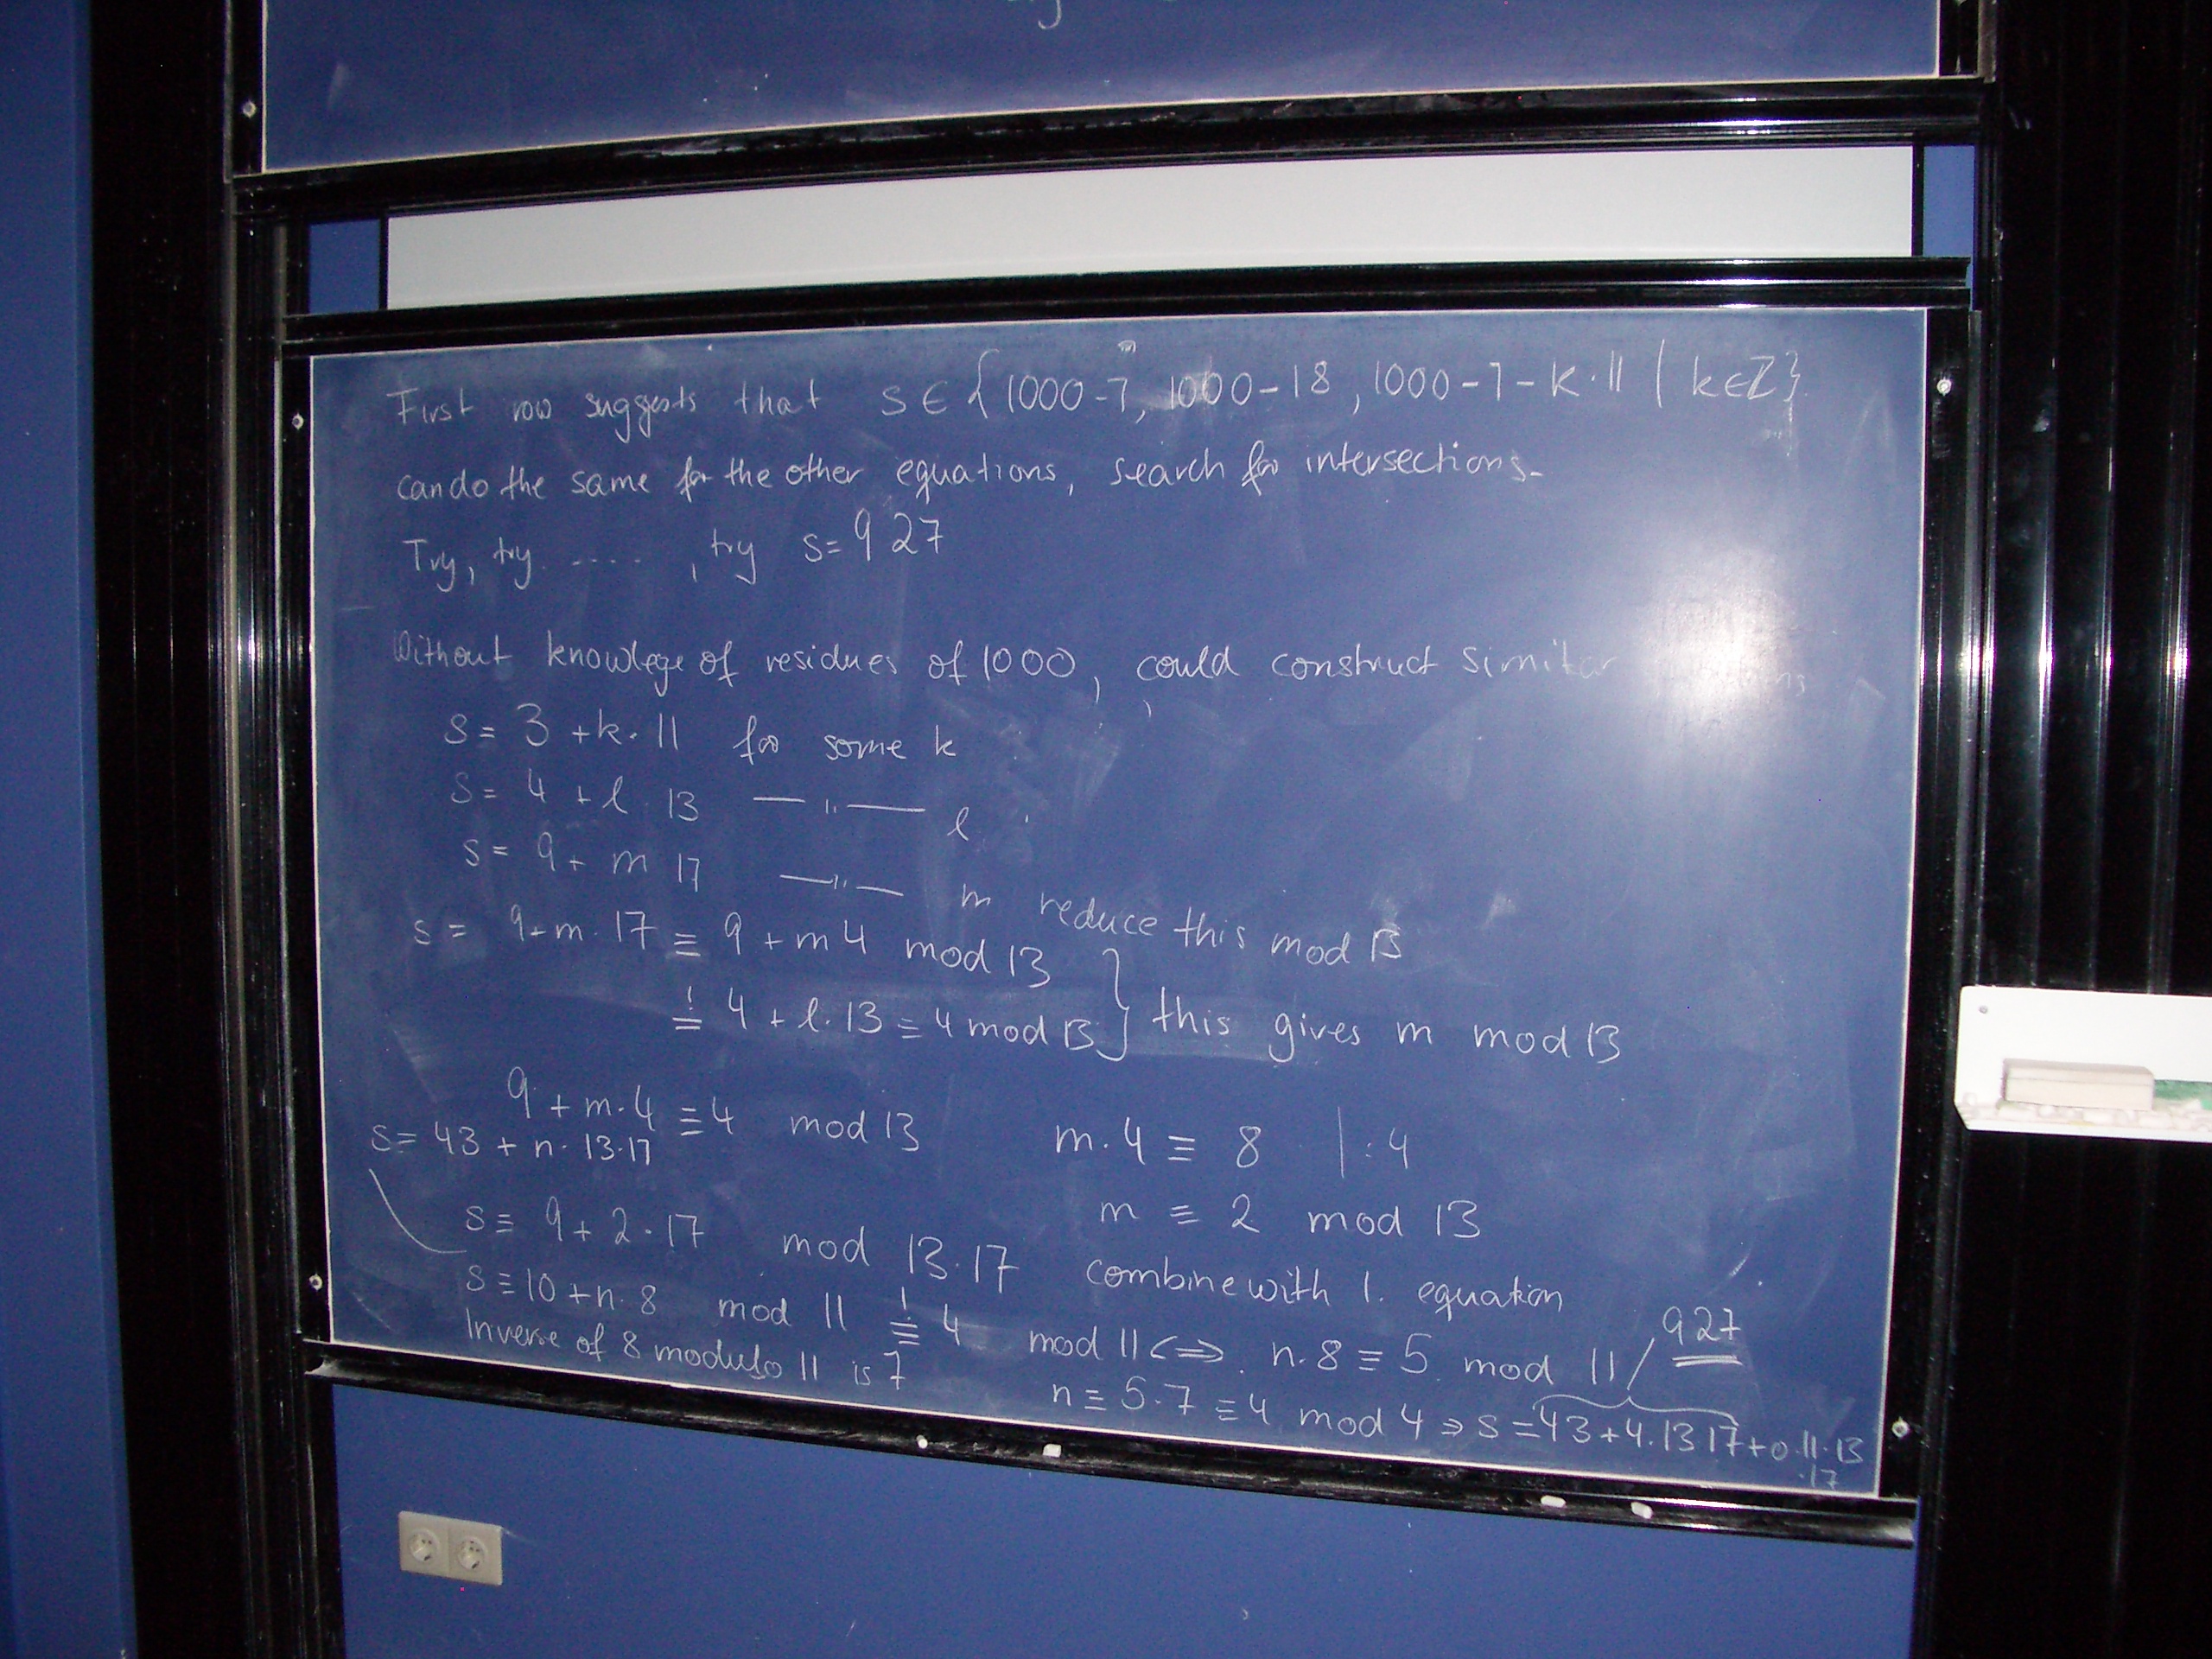 First row suggests that s ∈ {1000-7, 1000-18, 1000-7-k·11 | k∈Z}
can do the same for the other equations, search for intersections.
Try, try ....., try s= 927
Without knowlege of residues of 1000, could construct similar
s= 3 +k·11 for some k
s= 4 + l·13 —"— l
s= 9 + m 17 —"— m reduce this mod 13
s = 9+m·17 ≡ 9 + m4 mod 13
≡! 4 + l·13 ≡ 4 mod 13 } this gives m mod 13
9 + m·4 ≡ 4 mod 13 m·4 ≡ 8 | :4
s= 43 + n·13·17
m ≡ 2 mod 13
s ≡ 9 + 2·17 mod 13·17 combine with 1. equation
s ≡ 10 + n·8 mod 11 ≡! 4 mod 11 <=> n·8 ≡ 5 mod 11 / 927
Inverse of 8 modulo 11 is 7 n ≡ 5·7 ≡ 4 mod 4 ⇒ s = 43+4·13 17+o·11·13
·17